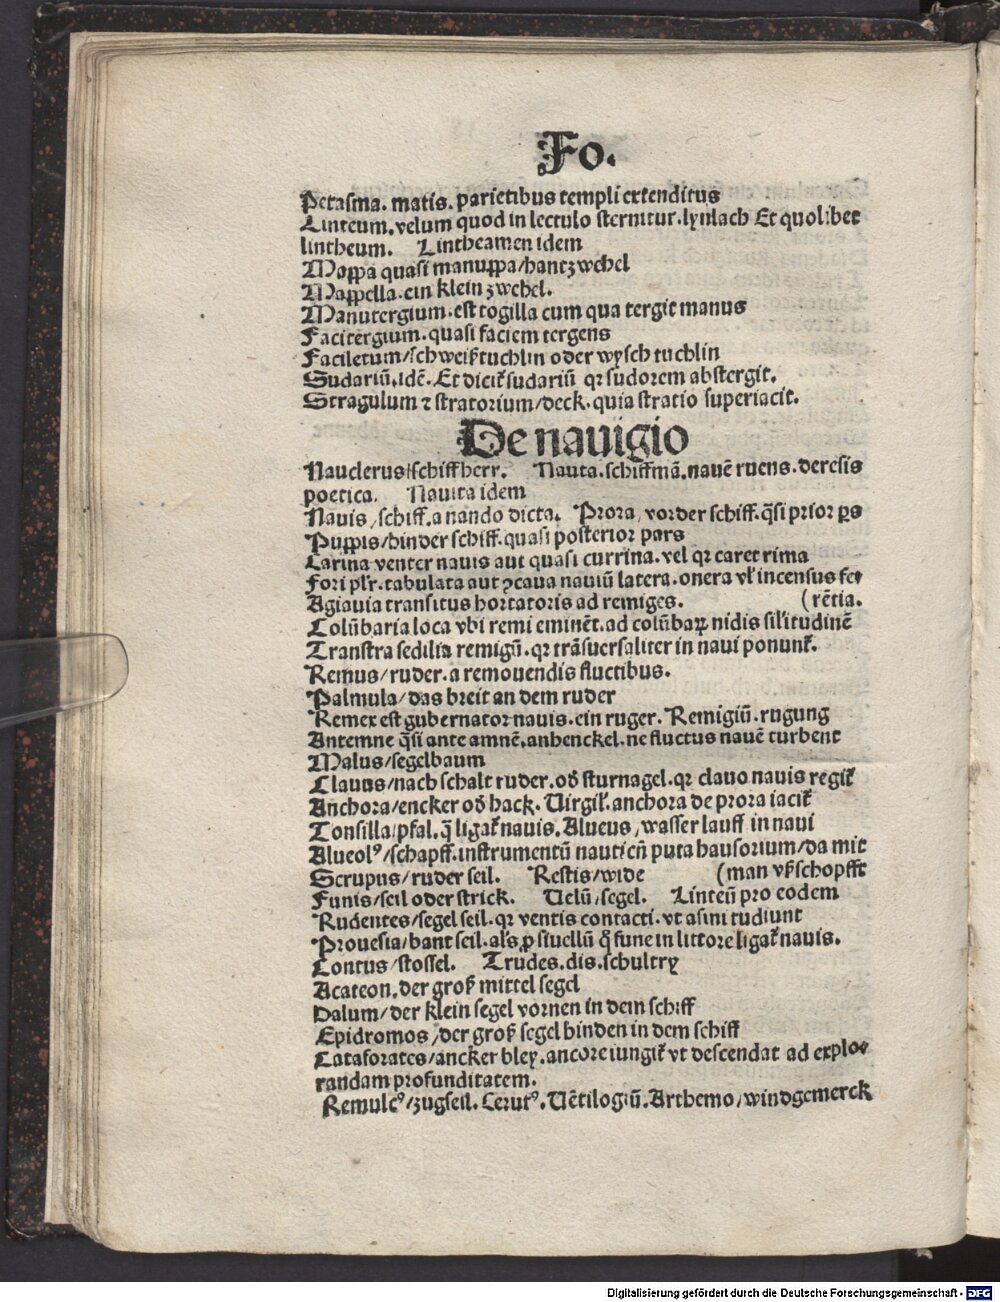 Fo.
Petasma. matis. parietibus templi extenditus
Linteum. velum quod in lectulo sternitur. lynlach Et quolibet
lintheum. Lintheamen idem
Mappa quasi manuppa/hantzwehel
Mappella. ein klein zwehel.
Manutergium. est togilla cum qua tergit manus
Facitergium. quasi faciem tergens
Faciletum/schweißtuchlin oder wysch tuchlin
Sudariū. idē. Et dicit᷑ sudariū qꝛ sudorem abstergit.
Stragulum ⁊ stratorium/deck. quia stratio superiacit.
De nauigio
Nauclerus/schiffherr. Nauta. schiffmā. nauē ruens. deresis
poetica. Nauita idem
Nauis/schiff. a nando dicta. Prora/vorder schiff. q̄si prior ꝑs
Puppis/hinder schiff. quasi posterior pars
Carina venter nauis aut quasi currina. vel qꝛ caret rima
Fori plr̄. tabulata aut ꝯcaua nauiū latera. onera vl̓ incensus fe⸗
Agiauia transitus hortatoris ad remiges. (rētia.
Colūbaria loca vbi remi eminēt. ad colūbaꝝ nidis sil̓itudinē
Transtra sedilia remigū. qꝛ trāsuersaliter in naui ponunt᷑.
Remus/ruder. a remouendis fluctibus.
Palmula/das breit an dem ruder
Remex est gubernator nauis. ein ruger. Remigiū. rugung
Antemne q̄si ante amnē. anhenckel. ne fluctus nauē turbent
Malus/segelbaum
Clauus/nach schalt ruder. od̓ sturnagel. qꝛ clauo nauis regit᷑
Anchora/encker od̓ hack. Virgil̓. anchora de prora iacit᷑
Tonsilla/pfal. q̄ ligat᷑ nauis. Alueus/wasser lauff in naui
Alueolꝰ/schapff. instrumentū nauticū puta hausorium/da mit
Scrupus/ruder seil. Restis/wide (man vß schopfft
Funis/seil oder strick. Uelū/segel. Linteū pro eodem
Rudentes/segel seil. qꝛ ventis contacti. vt asini rudiunt
Prouesia/bant seil. al̓s ꝓsiuellū q̄ fune in littore ligat᷑ nauis.
Contus/stossel. Trudes. dis. schultry
Acateon. der groß mittel segel
Dalum/der klein segel vornen in dem schiff
Epidromos/der groß segel hinden in dem schiff
Cataforates/ancker bley. ancore iungit᷑ vt descendat ad explo⸗
randam profunditatem.
Remulcꝰ/zugseil. Cerutꝰ. Uētilogiū. Arthemo/windgemerck
Digitalisierung gefördert durch die Deutsche Forschungsgemeinschaft - DFG